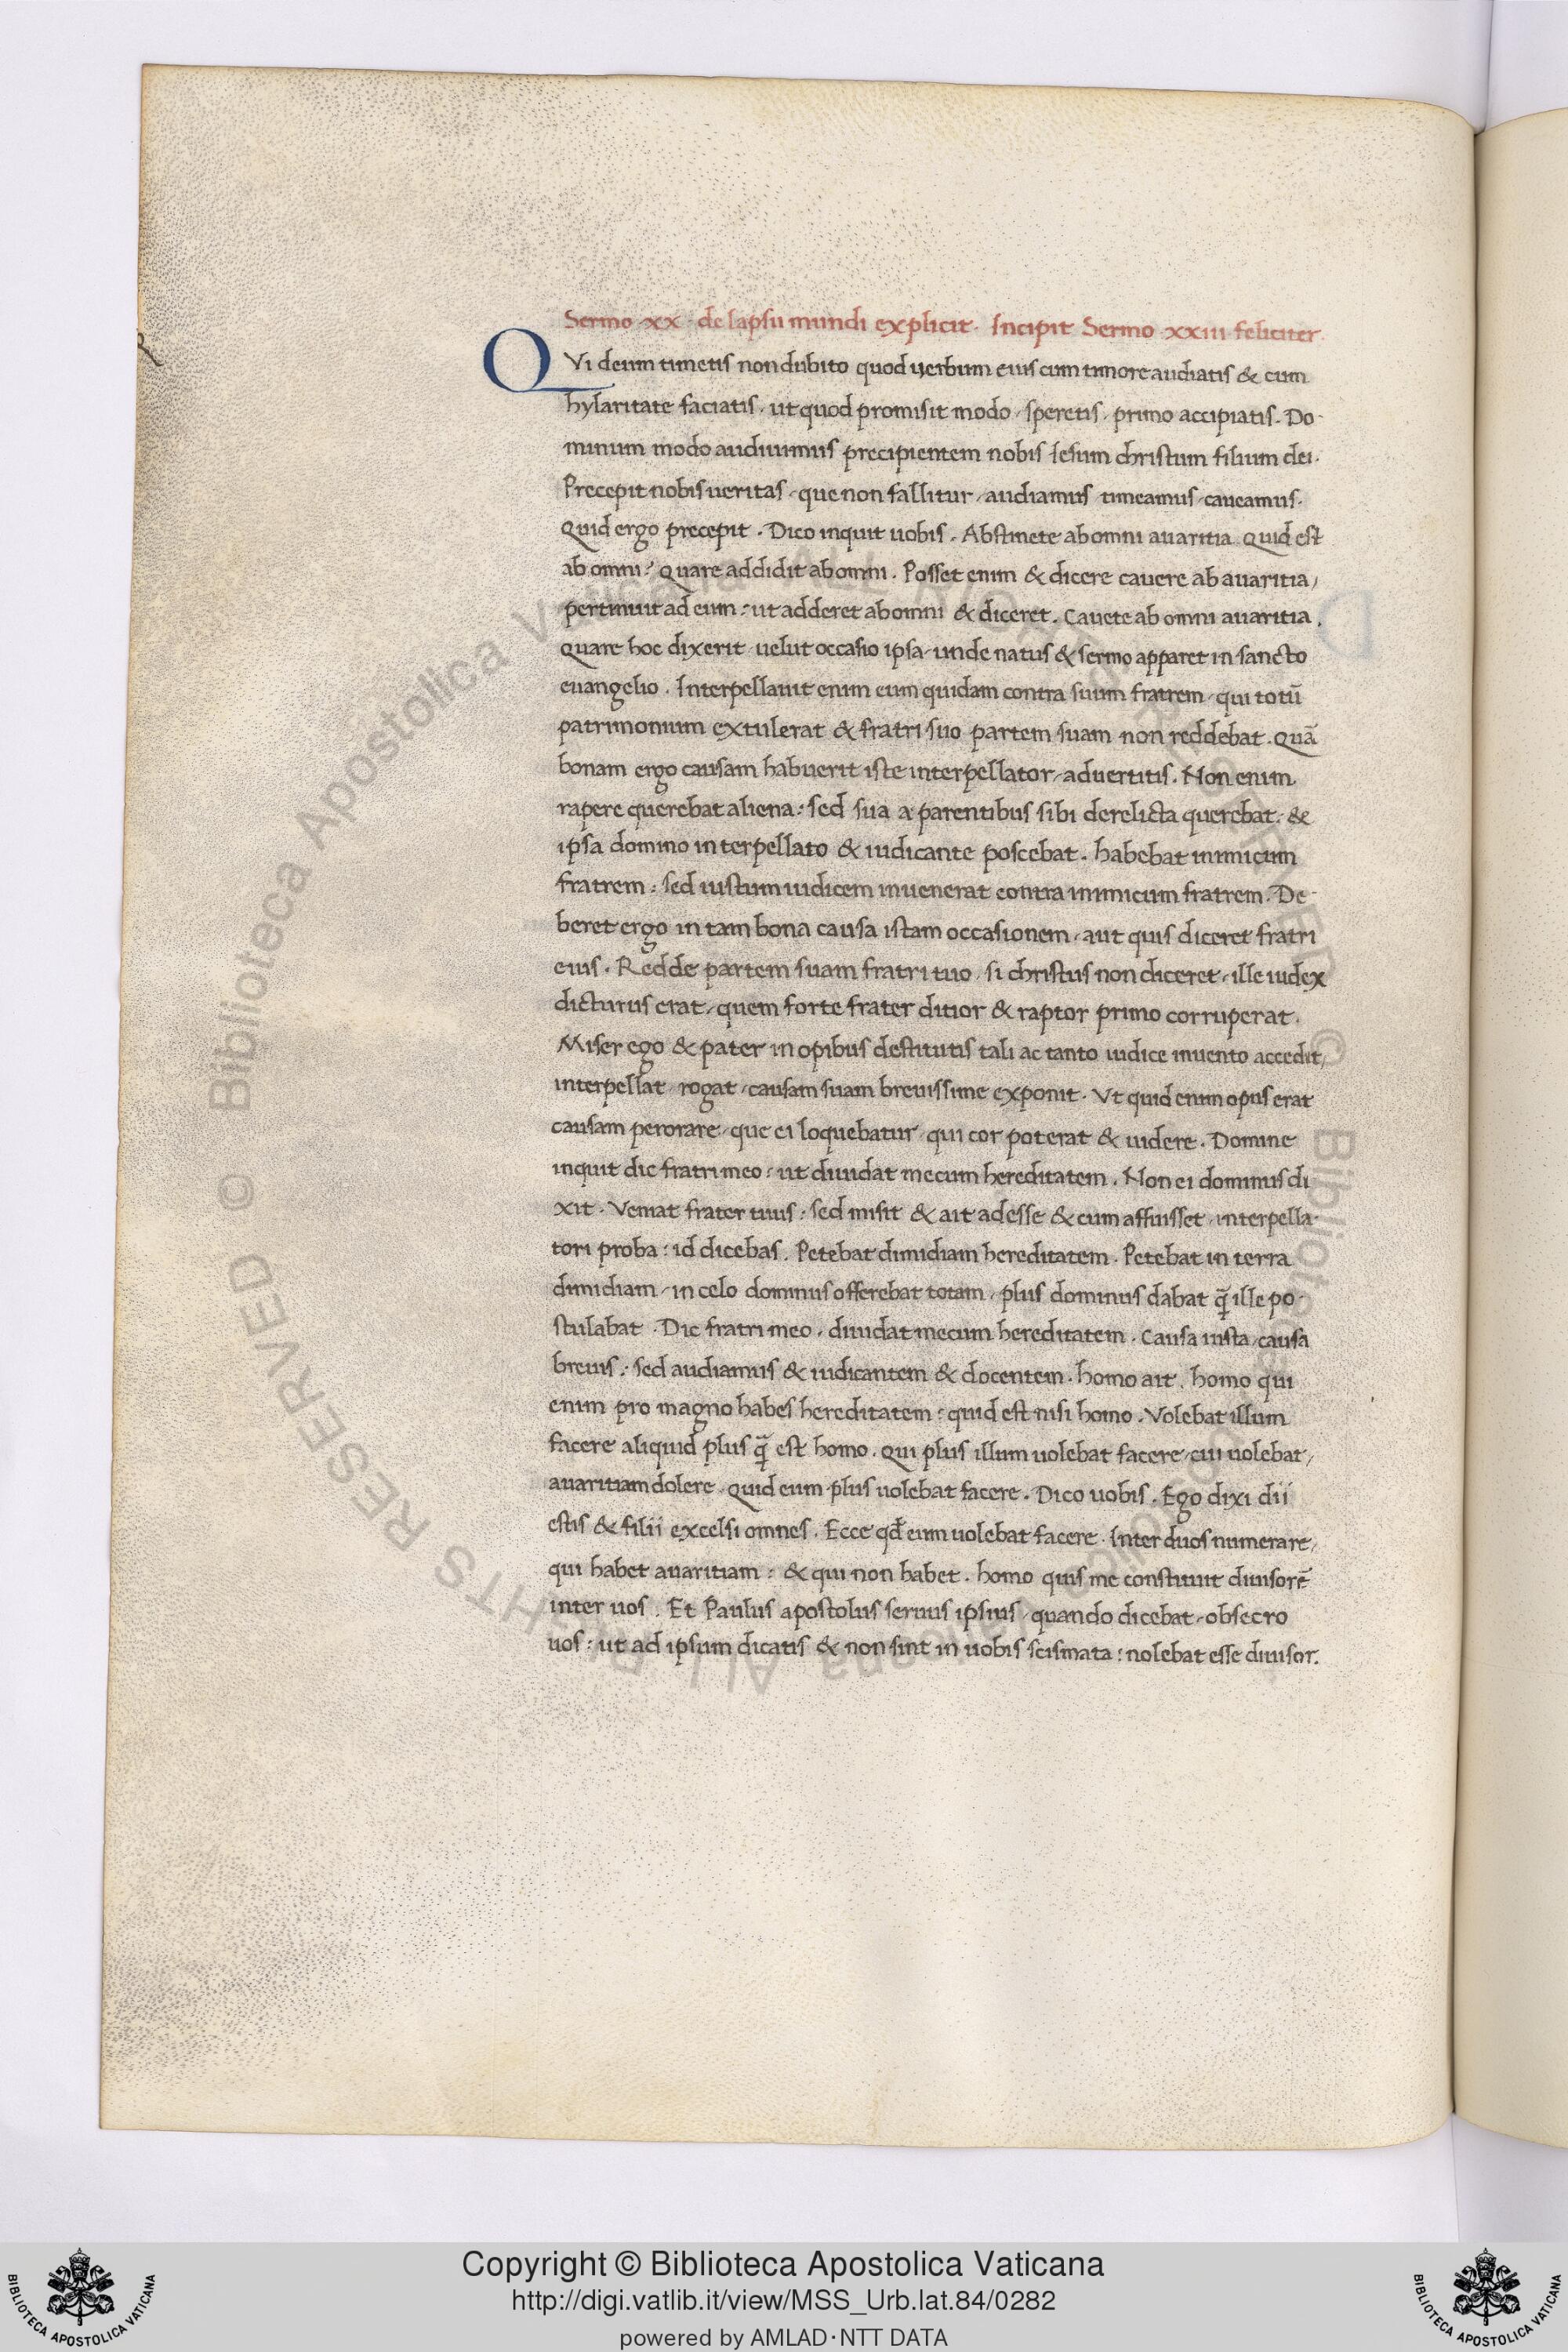 Sermo · xx · de lapsu mundi explicit · Incipit Sermo xxiii feliciter ·
QVi deum timetis non dubito quod uerbum eius cum timore audiatis & cum
hylaritate faciatis · ut quod promisit modo · speretis · primo accipiatis. Do-
minum modo audiuimus precipientem nobis Iesum christum filium dei.
Precepit nobis ueritas · que non fallitur · audiamus timeamus · caueamus.
Quid ergo precepit . Dico inquit uobis . Abstinete ab omni auaritia . Quid est
ab omni : Quare addidit ab omni . Posset enim & dicere cauere ab auaritia,
pertinuit ad eum : ut adderet ab omni & diceret . Cauete ab omni auaritia .
Quare hoc dixerit · uelut occasio ipsa · unde natus & sermo apparet in sancto
euangelio . Interpellauit enim eum quidam contra suum fratrem · qui totū
patrimonium extulerat & fratri suo partem suam non reddebat . Quā
bonam ergo causam habuerit iste interpellator · aduertitis . Non enim
rapere querebat aliena : sed sua a parentibus sibi derelicta querebat · &
ipsa domino interpellato & iudicante poscebat . habebat inimicum
fratrem : sed iustum iudicem inuenerat contra inimicum fratrem . De-
beret ergo in tam bona causa istam occasionem · aut quis diceret fratri
eius . Redde partem suam fratri tuo · si christus non diceret · ille iudex
dicturus erat · quem forte frater ditior & raptor primo corruperat .
Miser ego & pater in opibus destitutis tali ac tanto iudice inuento accedit,
interpellat · rogat · causam suam breuissime exponit . Vt quid enim opus erat
causam perorare · que ei loquebatur · qui cor poterat & uidere . Domine
inquit dic fratri meo : ut diuidat mecum hereditatem . Non ei dominus di
xit . Veniat frater tuus : sed misit & ait adesse & cum affuisset · interpella-
tori proba : id dicebas . Petebat dimidiam hereditatem . Petebat in terra
dimidiam · in celo dominus offerebat totam · plus dominus dabat q̄ ille po-
stulabat . Dic fratri meo · diuidat mecum hereditatem . Causa iusta · causa
breuis : sed audiamus & iudicantem & docentem . homo ait . homo qui
enim pro magno habes hereditatem : quid est nisi homo . Volebat illum
facere aliquid plus q̄ est homo . Qui plus illum uolebat facere · cui uolebat,
auaritiam dolere · Quid eum plus uolebat facere . Dico uobis . Ego dixi dii
estis & filii excelsi omnes . Ecce qđ eum uolebat facere . Inter duos numerare,
qui habet auaritiam : & qui non habet . homo quis me constituit diuisorē
inter uos . Et Paulus apostolus seruus ipsius · quando dicebat · obsecro
uos : ut ad ipsum dicatis & non sint in uobis scismata : nolebat esse diuisor.
© Biblioteca Apostolica Vaticana ALL RIGHTS RESERVED © Biblioteca Apostolica Vaticana ALL RIGHTS RESERVED
Copyright © Biblioteca Apostolica Vaticana
http://digi.vatlib.it/view/MSS_Urb.lat.84/0282
powered by AMLAD·NTT DATA
BIBLIOTECA APOSTOLICA VATICANA
BIBLIOTECA APOSTOLICA VATICANA